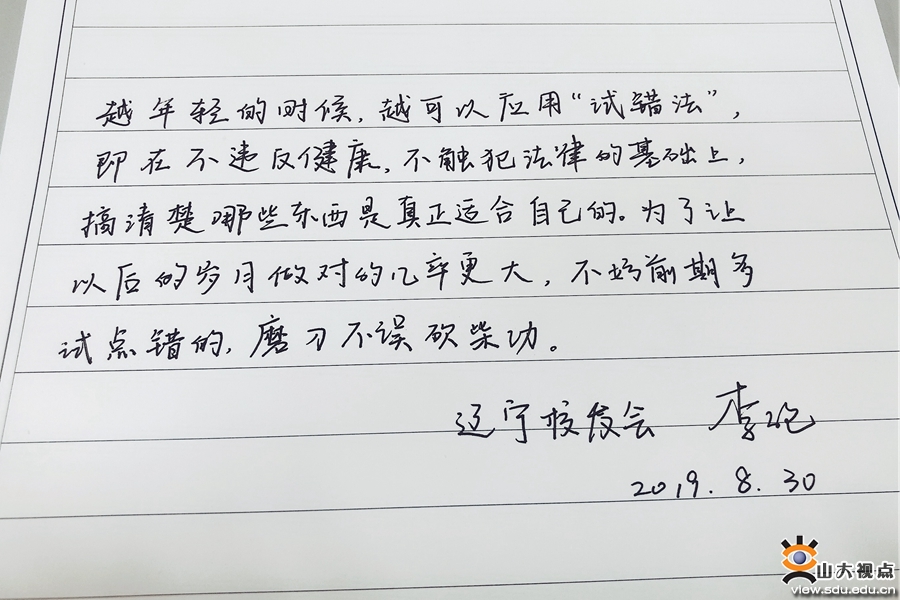 越年轻的时候，越可以应用“试错法”，
即在不违反健康，不触犯法律的基础上，
搞清楚哪些东西是真正适合自己的。为了让
以后的岁月做对的几率更大，不妨前期多
试点错的，磨刀不误砍柴功。
辽宁校友会 李
2019.8.30
山大视点
view.sdu.edu.cn